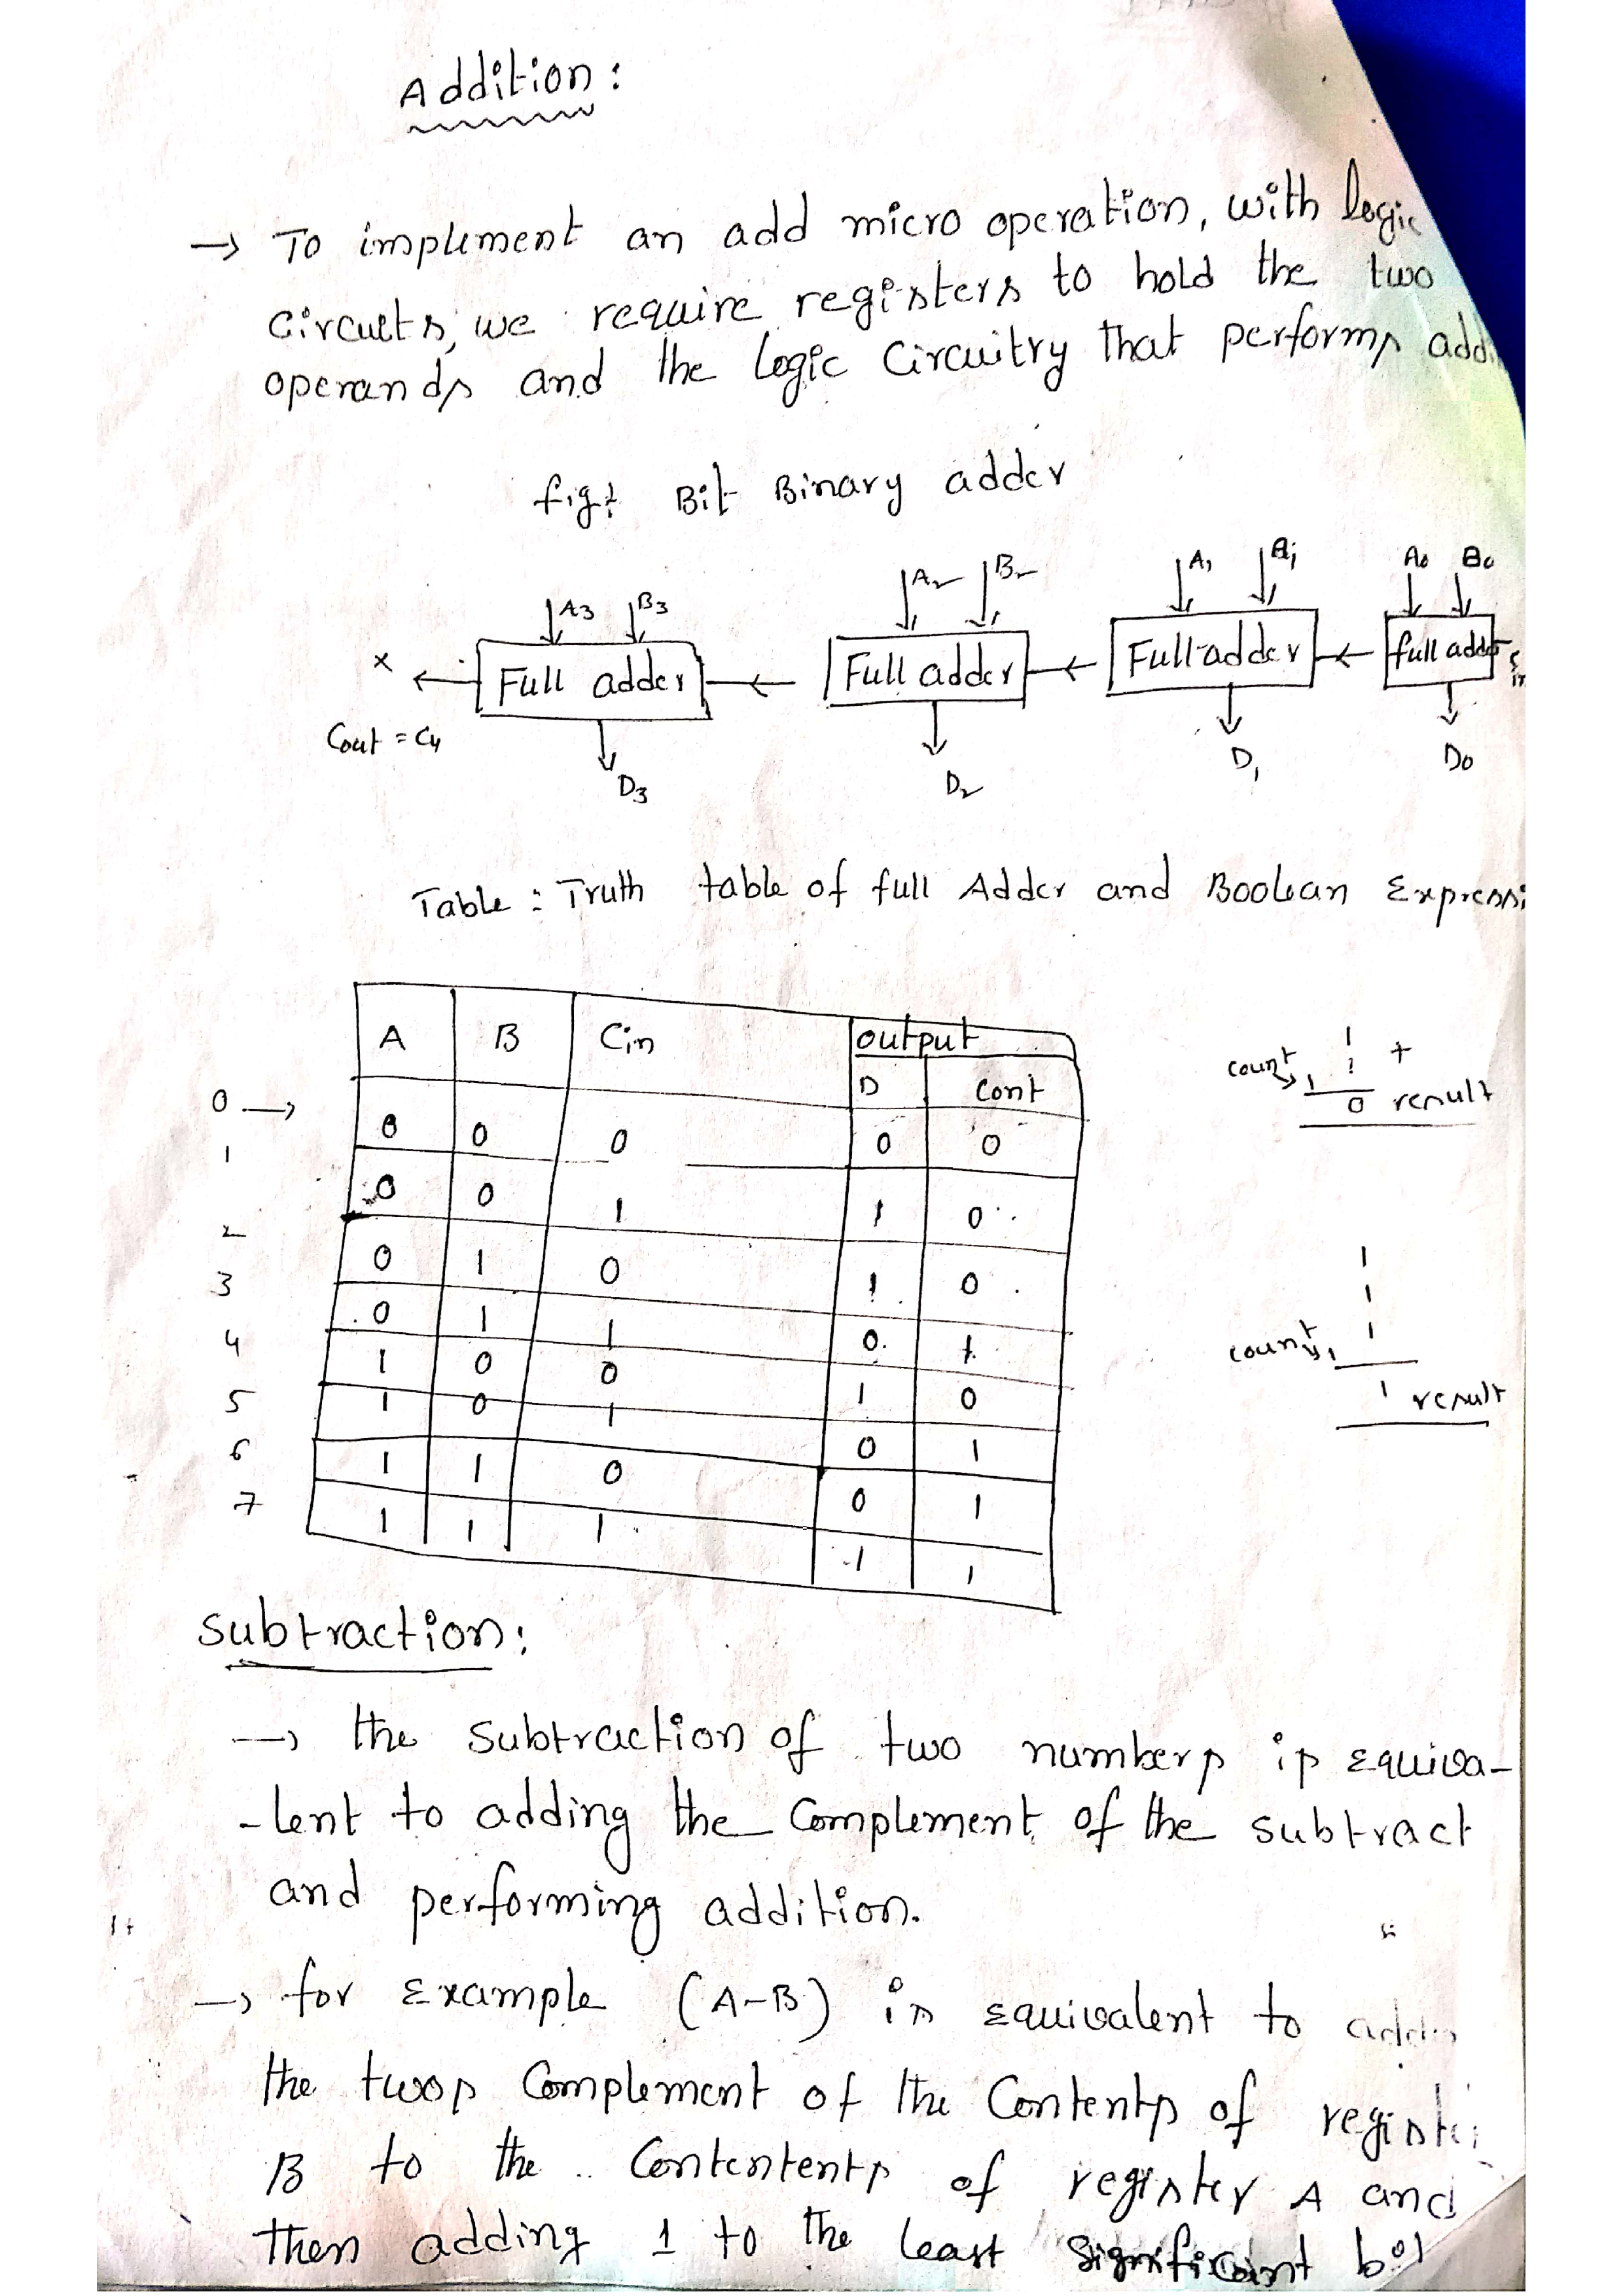 Addition:
→ To implement an add micro operation, with logic
circuits, we require registers to hold the two
operands and the logic circuitry that performs
fig: Bit Binary adder
A3 B3 A2 B2 A1 B1 A0 B0
x ← Full adder ← Full adder ← Full adder ← full adder
Cout = C4
D3 D2 D1 D0
Table: Truth table of full Adder and Boolean
A B Cin output
D Cont
0 → 0 0 0 0 0
1 0 0 1 1 0
2 0 1 0 1 0
3 0 1 1 0 1
4 1 0 0 1 0
5 1 0 1 0 1
6 1 1 0 0 1
7 1 1 1 1 1
1
count 1 +
1
0 result
1
1
count 1 1
1 result
subtraction:
→ the subtraction of two numbers is equiva-
-lent to adding the complement of the subtract
and performing addition.
→ for example (A-B) is equivalent to
the twos complement of the contents of
B to the contentents of register A and
then adding 1 to the least significant